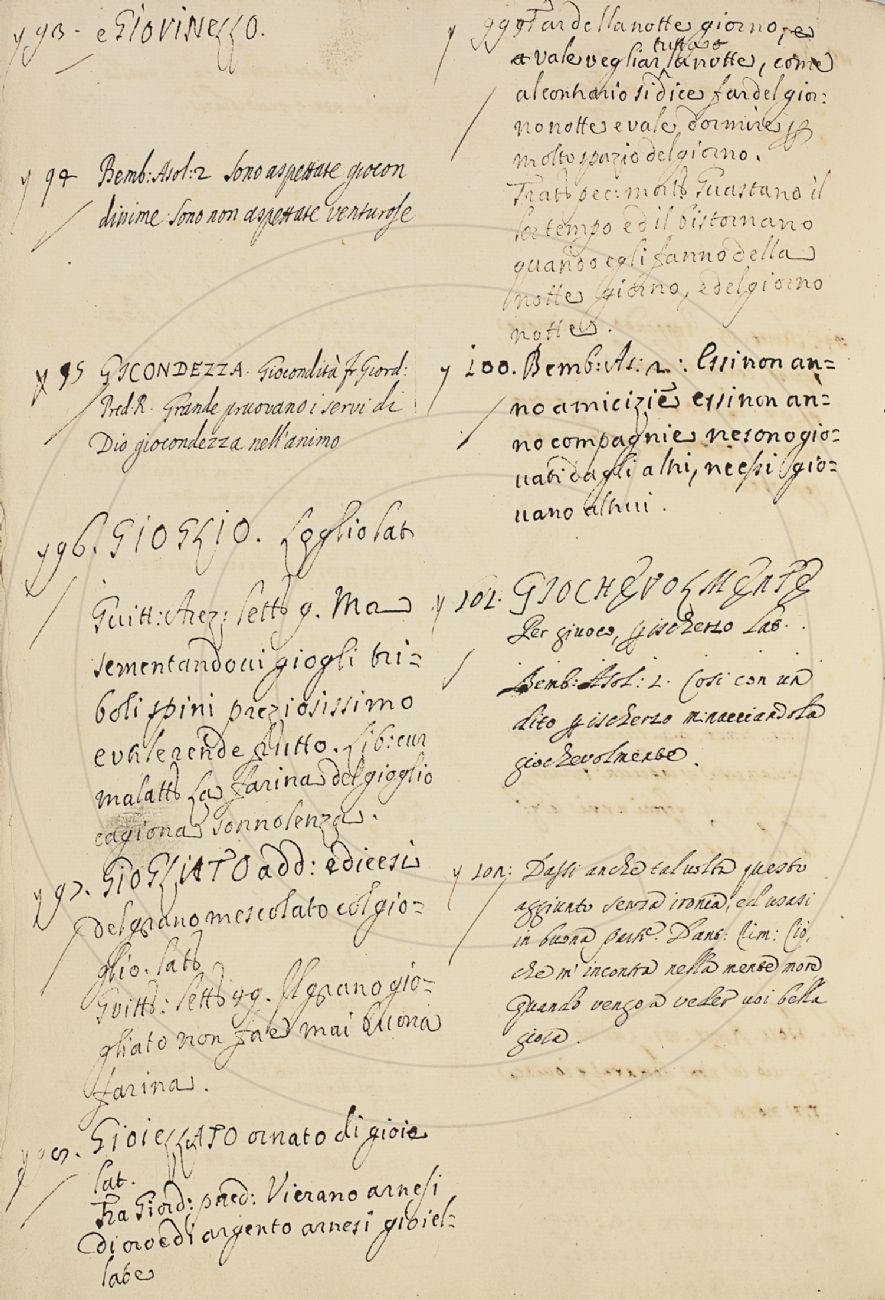 y 93. e GIOVINEZZO.
y 94 Bemb: Asol: 2 Sono aspettate giocon
dissime sono non aspettate venturose
y 95 GIOCONDEZZA. Giocondità fr Giord:
Pred. R. Grande pruovano i servi di
Dio giocondezza nell'animo
y 96. GIOGLIO. Loglio lat
Guitt: Arez: lett 9. Ma
sementandovi giogli tri=
boli spini preziosissimo
e utile rende frutto. Lib: cur
malatt La farina del gioglio
cagiona sonnolenza.
y 97. GIOGLIATO add: e dicesi
del grano mescolato col gio=
glio. lat
Guitt: lett 49. Il grano gio=
gliato non fae mai buona
farina.
y 98. GIOIELLATO ornato di gioie
lat.
Fra Giord: pred: Vierano arnesi
di oro e di argento arnesi gioiel=
late
y 99 Far della notte giorno,
vale vegliar tutta la notte, come
al contrario si dice far del gior:
no notte e vale dormire p
molto spazio del giorno.
Tratt pec: mort Guastano il
lor tempo ed il bistornano
quando egli fanno della
notte giorno, e del giorno
notte.
y 100. Bemb: As: 2: Essi non an=
no amicizie essi non an=
no compagnie ne sono gio=
vati dagli altri, nè essi gio=
vano altrui.
y 101. GIOCHEVOLMENTE
Per giuoco, p ischerzo Lat.
Bemb: Asol: 2. Così con un
dito p ischerzo minacciandola
giochevolmente.
y 102: Dassi anche talvolta questo
aggiunto senza ironia, ed usasi
in buona parte. Dant: Rim: Ciò,
che m'incontra nella mente more
quando vengo a veder voi bella
gioia.